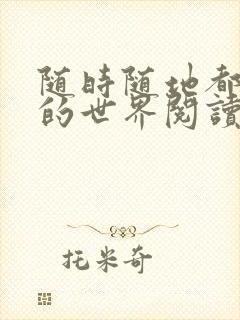 随時随地都
的世界閱讀
托米奇